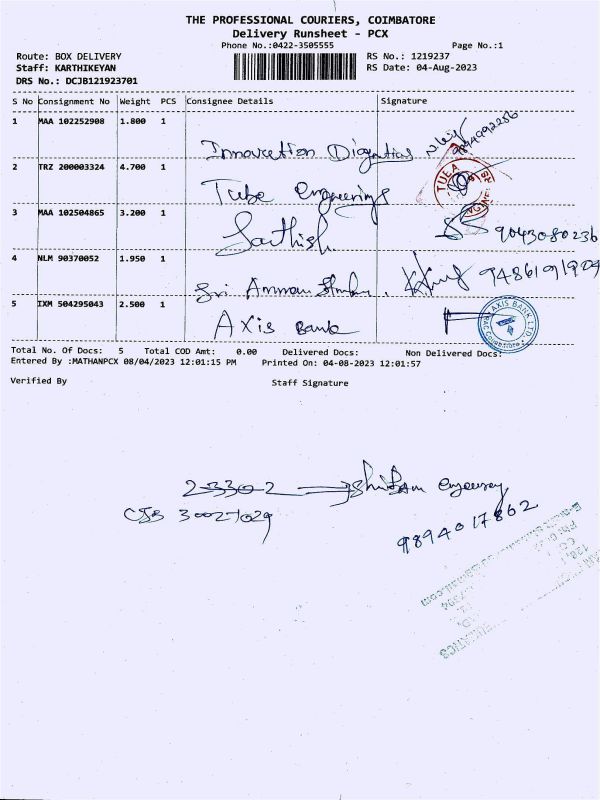 THE PROFESSIONAL COURIERS, COIMBATORE
Delivery Runsheet - PCX
Phone No.:0422-3505555 Page No.:1
Route: BOX DELIVERY RS No.: 1219237
Staff: KARTHIKEYAN RS Date: 04-Aug-2023
DRS No.: DCJB121923701
S No Consignment No Weight PCS Consignee Details Signature
1 MAA 102252908 1.800 1
2 TRZ 200003324 4.700 1
Tube Engineerings
3 MAA 102504865 3.200 1
Sarthish 9043080236
4 NLM 90370052 1.950 1
Sri Amman
5 IXM 504295043 2.500 1
Axis Bank
AXIS BANK LTD
Total No. Of Docs: 5 Total COD Amt: 0.00 Delivered Docs: Non Delivered Docs:
Entered By :MATHANPCX 08/04/2023 12:01:15 PM Printed On: 04-08-2023 12:01:57
Verified By Staff Signature
23302
9894017862